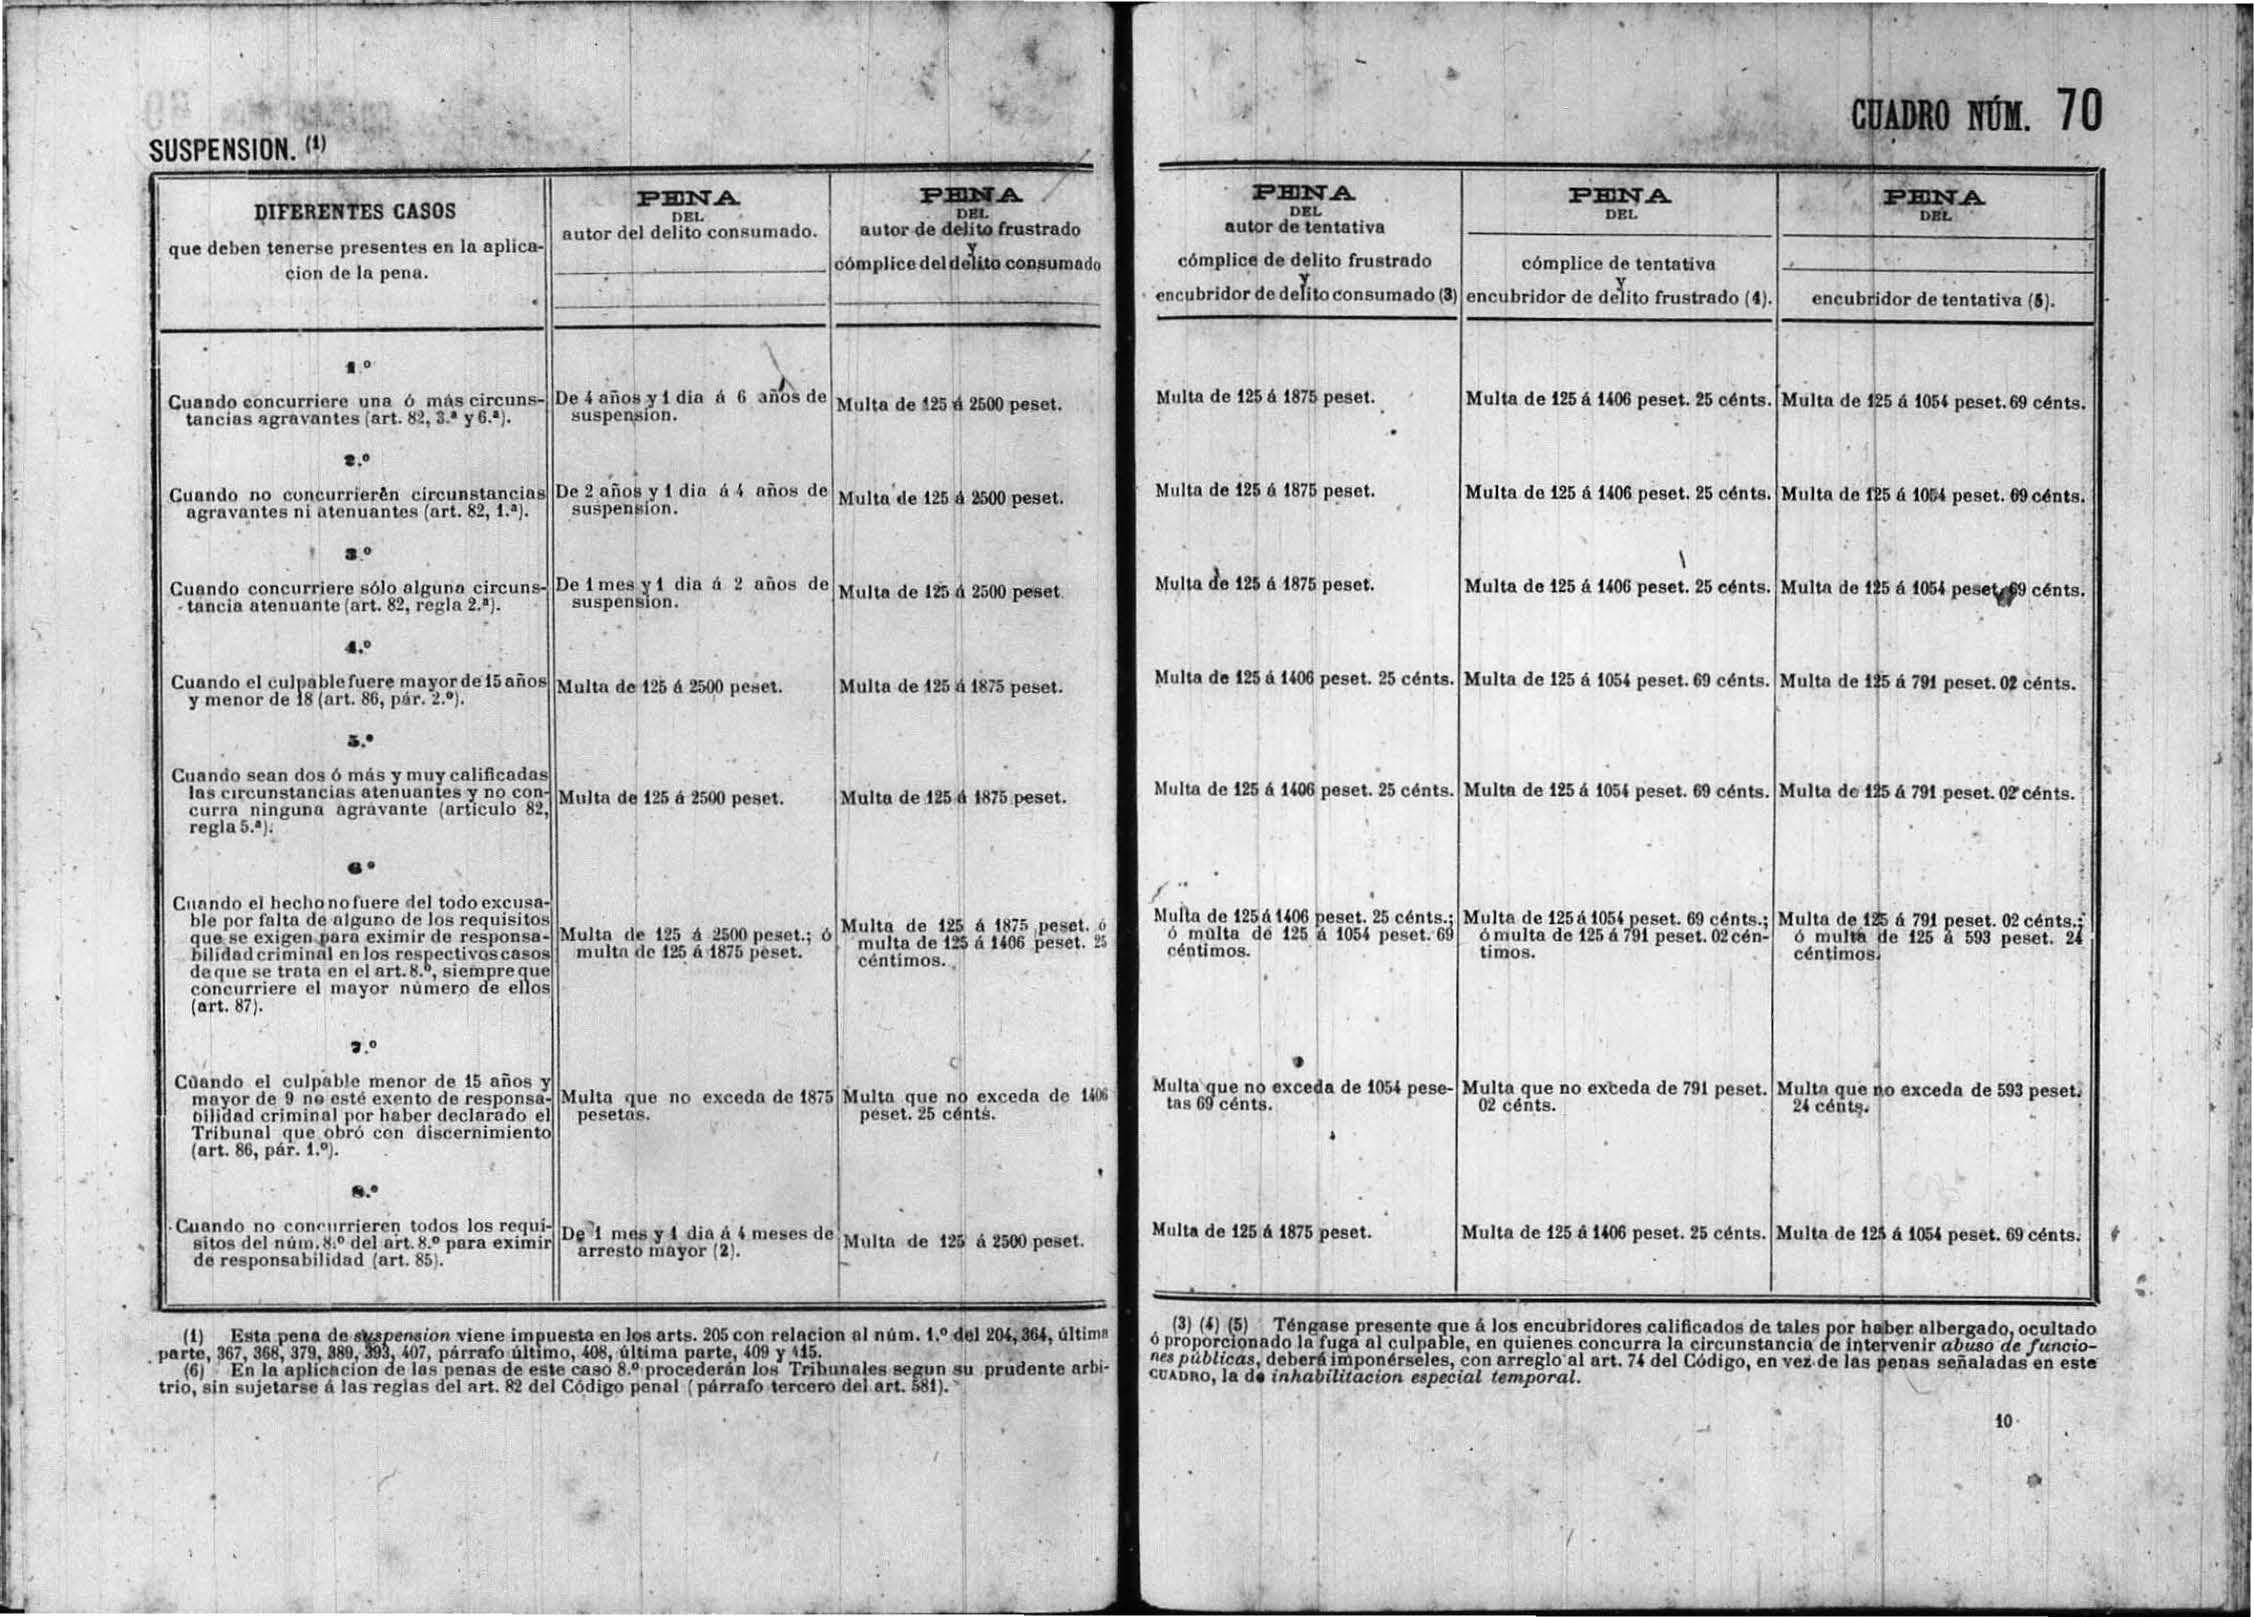 SUSPENSION. (1)
CUADRO NÚM. 70
DIFERENTES CASOS
que deben tenerse presentes en la aplica-
cion de la pena.
PENA
DEL
autor del delito consumado.
PENA
DEL
autor de delito frustrado
Y
cómplice del delito consumado
PENA
DEL
autor de tentativa
cómplice de delito frustrado
Y
encubridor de delito consumado (3)
PENA
DEL
cómplice de tentativa
Y
encubridor de delito frustrado (4).
PENA
DEL
encubridor de tentativa (5).
1.º
Cuando concurriere una ó más circuns-
tancias agravantes (art. 82, 3.ª y 6.ª).
De 4 años y 1 dia á 6 años de
suspension.
Multa de 125 á 2500 peset.
Multa de 125 á 1875 peset.
Multa de 125 á 1406 peset. 25 cénts.
Multa de 125 á 1054 peset. 69 cénts.
2.º
Cuando no concurrieren circunstancias
agravantes ni atenuantes (art. 82, 1.ª).
De 2 años y 1 dia á 4 años de
suspension.
Multa de 125 á 2500 peset.
Multa de 125 á 1875 peset.
Multa de 125 á 1406 peset. 25 cénts.
Multa de 125 á 1054 peset. 69 cénts.
3.º
Cuando concurriere sólo alguna circuns-
tancia atenuante (art. 82, regla 2.ª).
De 1 mes y 1 dia á 2 años de
suspension.
Multa de 125 á 2500 peset.
Multa de 125 á 1875 peset.
Multa de 125 á 1406 peset. 25 cénts.
Multa de 125 á 1054 peset. 69 cénts.
4.º
Cuando el culpable fuere mayor de 15 años
y menor de 18 (art. 86, pár. 2.º).
Multa de 125 á 2500 peset.
Multa de 125 á 1875 peset.
Multa de 125 á 1406 peset. 25 cénts.
Multa de 125 á 1054 peset. 69 cénts.
Multa de 125 á 791 peset. 02 cénts.
5.º
Cuando sean dos ó más y muy calificadas
las circunstancias atenuantes y no con-
curra ninguna agravante (artículo 82,
regla 5.ª).
Multa de 125 á 2500 peset.
Multa de 125 á 1875 peset.
Multa de 125 á 1406 peset. 25 cénts.
Multa de 125 á 1054 peset. 69 cénts.
Multa de 125 á 791 peset. 02 cénts.
6.º
Cuando el hecho no fuere del todo excusa-
ble por falta de alguno de los requisitos
que se exigen para eximir de responsa-
bilidad criminal en los respectivos casos
de que se trata en el art. 8.º, siempre que
concurriere el mayor número de ellos
(art. 87).
Multa de 125 á 2500 peset.; ó
multa de 125 á 1875 peset.
Multa de 125 á 1875 peset. ó
multa de 125 á 1406 peset. 25
céntimos.
Multa de 125 á 1406 peset. 25 cénts.;
ó multa de 125 á 1054 peset. 69
céntimos.
Multa de 125 á 1054 peset. 69 cénts.;
ó multa de 125 á 791 peset. 02 cén-
timos.
Multa de 125 á 791 peset. 02 cénts.;
ó multa de 125 á 593 peset. 24
céntimos.
7.º
Cuando el culpable menor de 15 años y
mayor de 9 no esté exento de responsa-
bilidad criminal por haber declarado el
Tribunal que obró con discernimiento
(art. 86, pár. 1.º).
Multa que no exceda de 1875
pesetas.
Multa que no exceda de 1406
peset. 25 cénts.
Multa que no exceda de 1054 pese-
tas 69 cénts.
Multa que no exceda de 791 peset.
02 cénts.
Multa que no exceda de 593 peset.
24 cénts.
8.º
Cuando no concurrieren todos los requi-
sitos del núm. 8.º del art. 8.º para eximir
de responsabilidad (art. 85).
De 1 mes y 1 dia á 4 meses de
arresto mayor (2).
Multa de 125 á 2500 peset.
Multa de 125 á 1875 peset.
Multa de 125 á 1406 peset. 25 cénts.
Multa de 125 á 1054 peset. 69 cénts.
(1) Esta pena de suspension viene impuesta en los arts. 205 con relacion al núm. 1.º del 204, 364, última
parte, 367, 368, 379, 389, 393, 407, párrafo último, 408, última parte, 409 y 415.
(6) En la aplicacion de las penas de este caso 8.º procederán los Tribunales segun su prudente arbi-
trio, sin sujetarse á las reglas del art. 82 del Código penal (párrafo tercero del art. 581).
(3) (4) (5) Téngase presente que á los encubridores calificados de tales por haber albergado, ocultado
ó proporcionado la fuga al culpable, en quienes concurra la circunstancia de intervenir abuso de funcio-
nes públicas, deberá imponérseles, con arreglo al art. 74 del Código, en vez de las penas señaladas en este
CUADRO, la de inhabilitacion especial temporal.
10